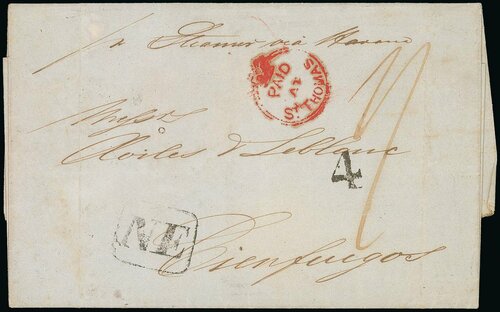 p Steamer via Havana
PAID
AT
ST THOMAS
Messrs
Aviles & Leblanc
4
NE
Cienfuegos